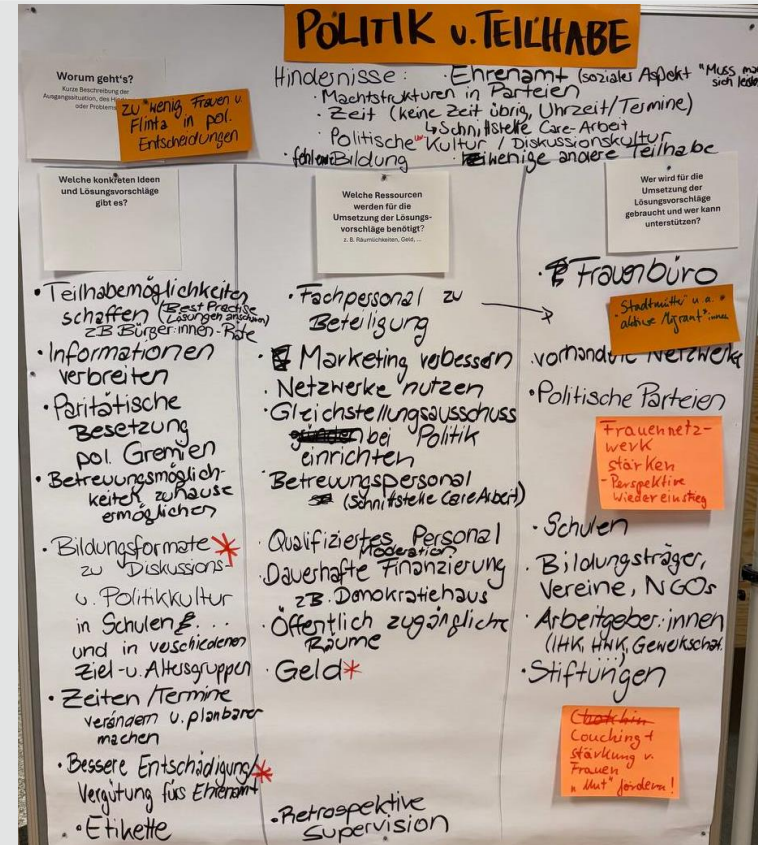 POLITIK u. TEILHABE
Worum geht's?
Kurze Beschreibung der
Ausgangssituation, des
oder Problems
zu wenig Frauen u.
Flinta in pol.
Entscheidungen
Hindernisse: · Ehrenamt (soziales Aspekt "Muss man
sich
· Machtstrukturen in Parteien
· Zeit (keine Zeit übrig, Uhrzeit/Termine)
↳ Schnittstelle Care-Arbeit
· Politische Kultur / Diskussionskultur
· Bildung · wenige andere Teilhabe
Welche konkreten Ideen
und Lösungsvorschläge
gibt es?
· Teilhabemöglichkeiten
schaffen (Best Practise
Lösungen anschauen)
zB Bürger:innen-Räte
· Informationen
verbreiten
· Paritätische
Besetzung
pol. Gremien
· Betreuungsmöglich-
keiten zuhause
ermöglichen
· Bildungsformate *
zu Diskussions-
u. Politikkultur
in Schulen ...
und in verschiedenen
Ziel- u. Altersgruppen
· Zeiten / Termine
verändern u. planbarer
machen
· Bessere Entschädigung/ *
Vergütung fürs Ehrenamt
· Etikette
Welche Ressourcen
werden für die
Umsetzung der Lösungs-
vorschläge benötigt?
z. B. Räumlichkeiten, Geld, ...
· Fachpersonal zu →
Beteiligung
· Marketing verbessern
· Netzwerke nutzen
· Gleichstellungsausschuss
bei Politik
einrichten
· Betreuungspersonal
(Schnittstelle Care Arbeit)
· Qualifiziertes Personal
Moderation
· Dauerhafte Finanzierung
zB. Demokratiehaus
· Öffentlich zugängliche
Räume
· Geld *
· Retrospektive
Supervision
Wer wird für die
Umsetzung der
Lösungsvorschläge
gebraucht und wer kann
unterstützen?
· Frauenbüro
· Stadtmütter u. a.
aktive Migrant*innen
· vorhandene Netzwerke
· Politische Parteien
Frauennetz-
werk
stärken
- Perspektive
Wiedereinstieg
· Schulen
· Bildungsträger,
Vereine, NGOs
· Arbeitgeber:innen
(IHK, HWK, Gewerkschaft
· Stiftungen
Couching +
stärkung v.
Frauen
"Mut" fördern!